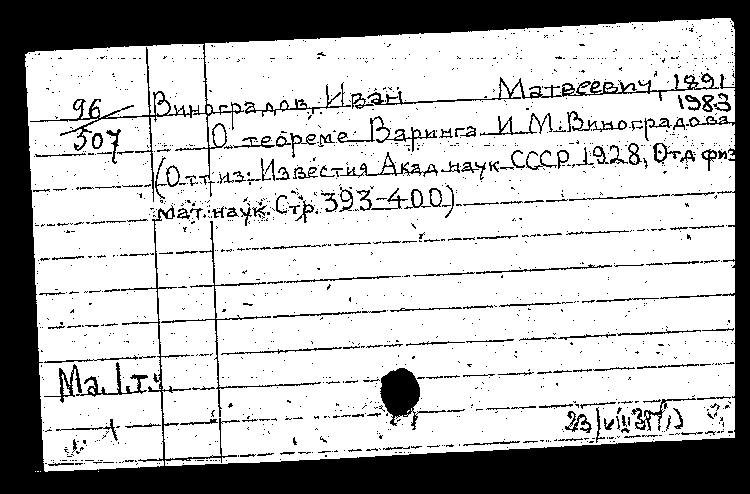 96 Виноградов, Иван Матвеевич, 1891
1983
507 О теореме Варинга И. М. Виноградова
(Отт из: Известия Акад. наук СССР 1928, Отд физ
мат. наук. Стр. 393-400)
Ма. I. т. ч.
23/VIII